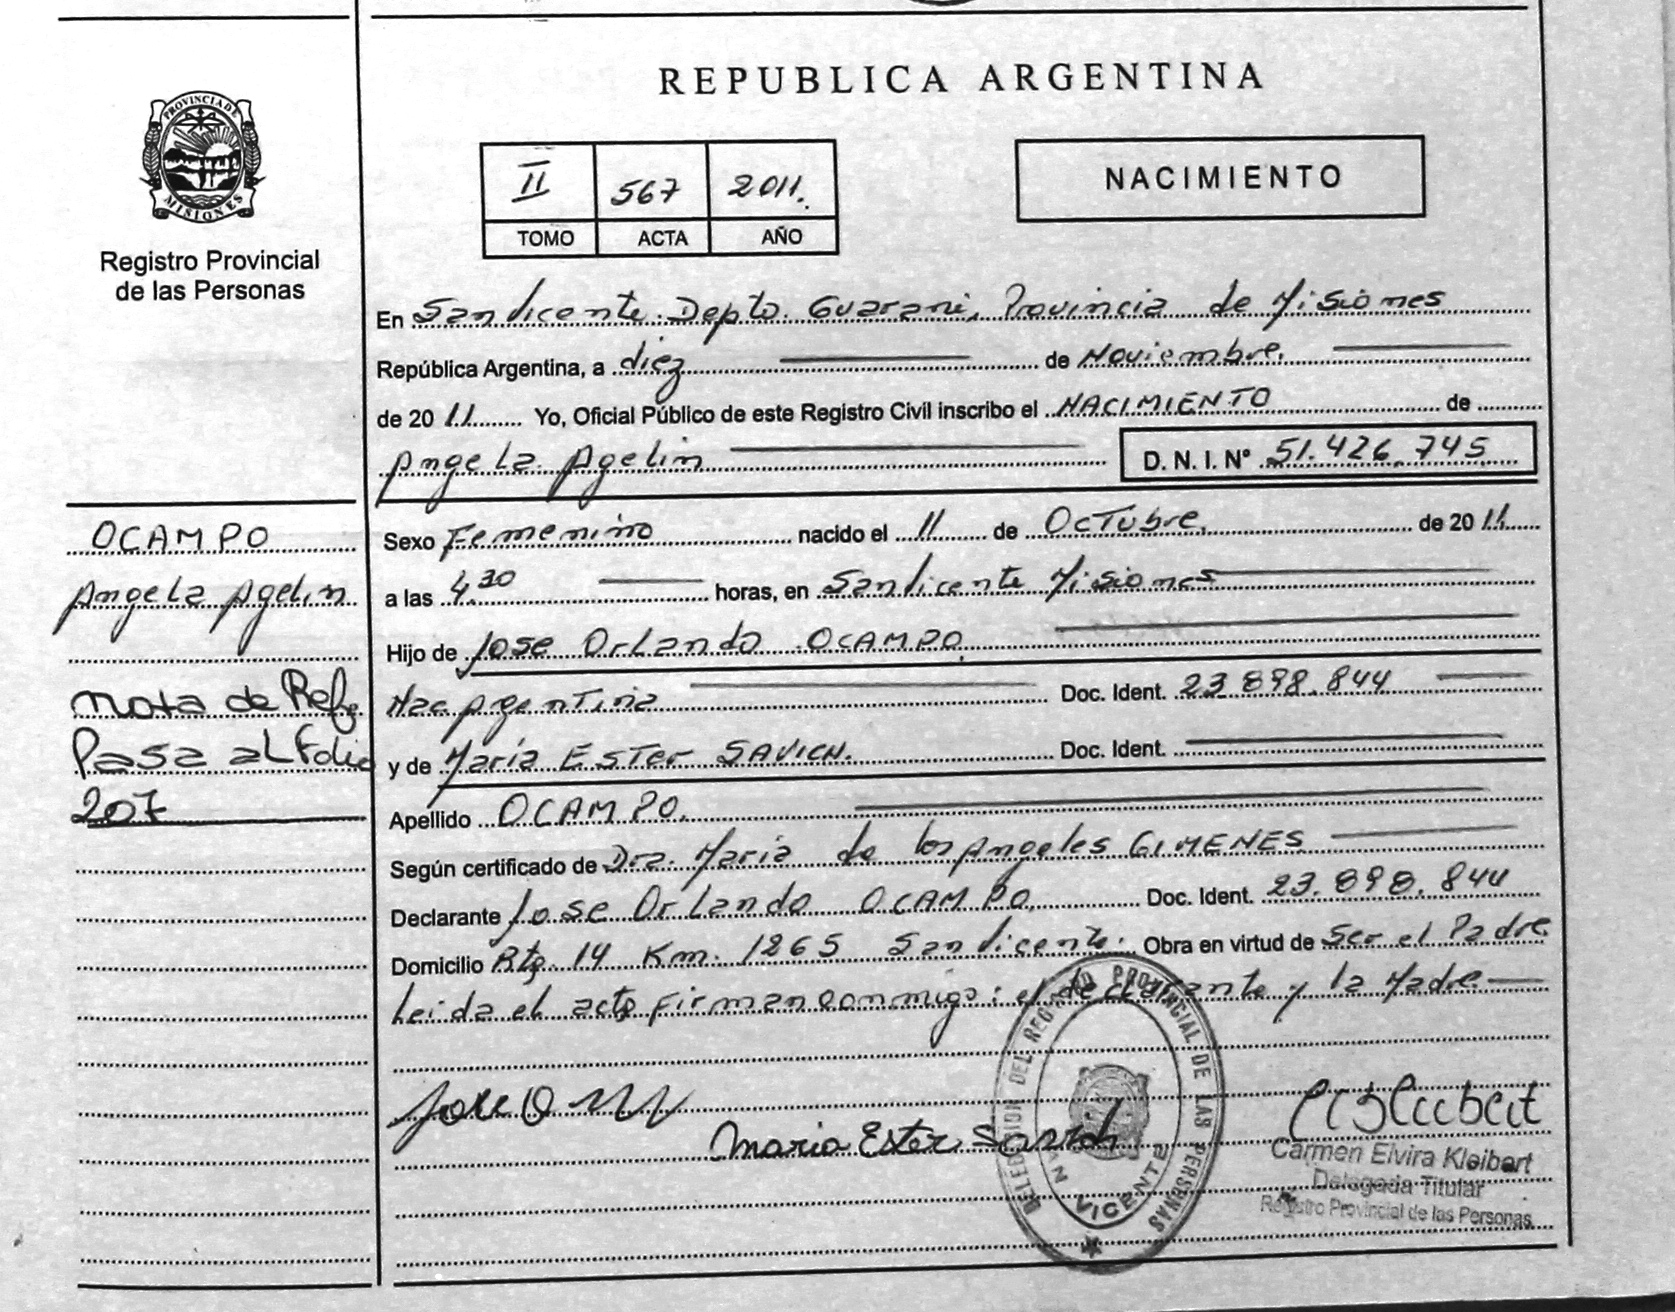 REPUBLICA ARGENTINA
PROVINCIA DE MISIONES
Registro Provincial
de las Personas
II 567 2011.
TOMO ACTA AÑO
NACIMIENTO
En San Vicente. Depto. Guarani, Provincia de Misiones
República Argentina, a diez de Noviembre.
de 2011 Yo, Oficial Público de este Registro Civil inscribo el NACIMIENTO de
Angela Agelin D. N. I. Nº 51.426.745
OCAMPO
Angela Agelin
Nota de Refe
Pasa al Folio
207
Sexo Femenino nacido el 11 de Octubre, de 2011
a las 4,30 horas, en San Vicente Misiones
Hijo de Jose Orlando OCAMPO
Nac Argentina Doc. Ident. 23.898.844
y de Maria Ester SAVICH. Doc. Ident.
Apellido OCAMPO.
Según certificado de Dra. Maria de los Angeles GIMENES
Declarante Jose Orlando OCAMPO Doc. Ident. 23.898.844
Domicilio Rta. 14 Km. 1265 San Vicente. Obra en virtud de Ser el Padre
Leida el acta firman conmigo: el declarante y la Madre
Jose O
Maria Ester
DELEGACION DEL REGISTRO PROVINCIAL DE LAS PERSONAS
SAN VICENTE
Carmen Elvira Kleibert
Delegada Titular
Registro Provincial de las Personas